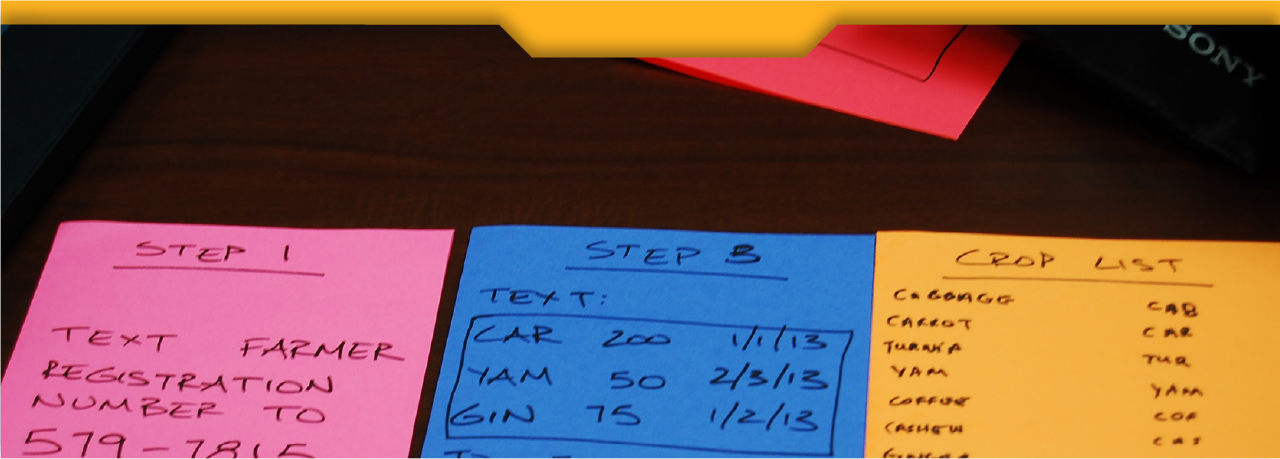 SONY
STEP 1
TEXT FARMER
REGISTRATION
NUMBER TO
579-7815
STEP 3
TEXT:
CAR 200 1/1/13
YAM 50 2/3/13
GIN 75 1/2/13
CROP LIST
CABBAGE CAB
CARROT CAR
TURNIP TUR
YAM YAM
COFFEE COF
CASHEW CAS
GINGER